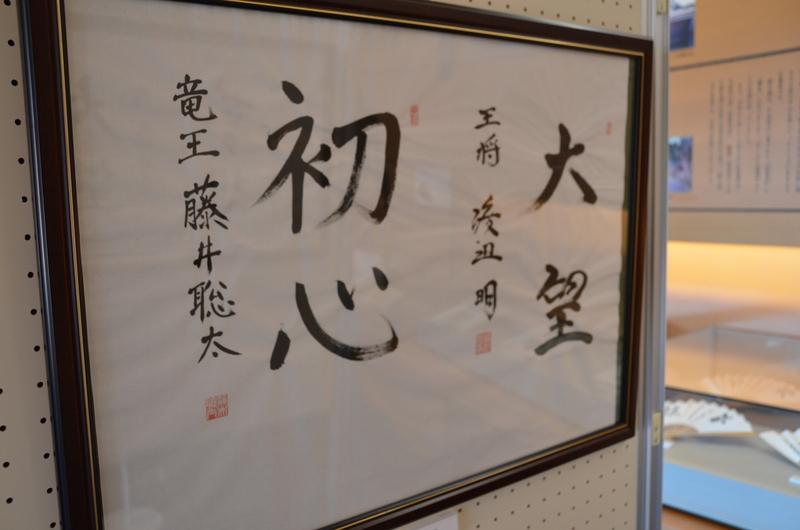 大望
王将 渡辺明
初心
竜王 藤井聡太